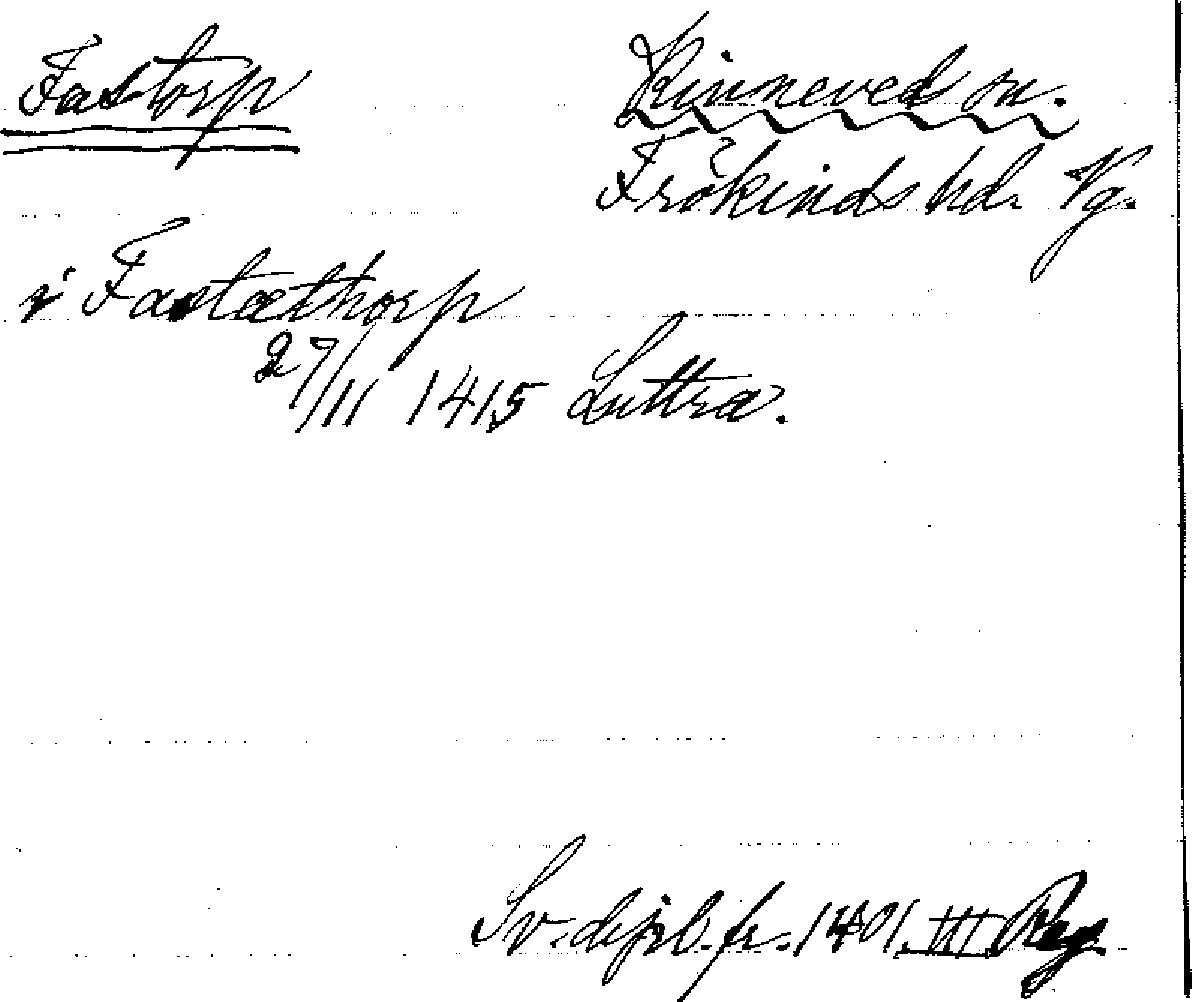 Fastorp
Kinneved sn.
Frökinds hd. Vg.
i Fastæthorp
27/11 1415 Luttra.
Sv. dipl. fr. 1401 III Reg